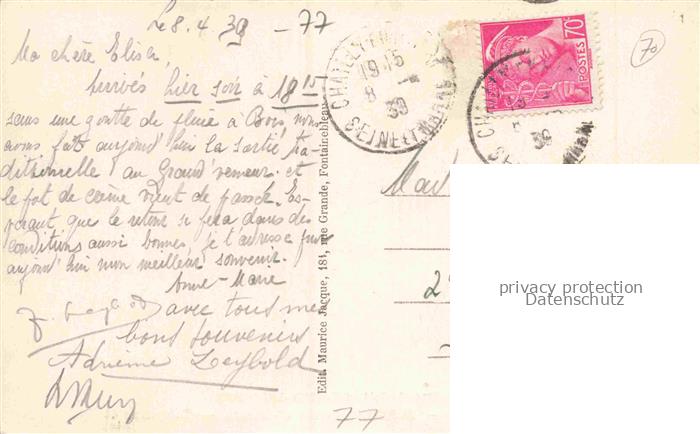 Le 8.4.39 - 77
Ma chère Elise,
Arrivés hier soir à 18 15
sous une goutte de pluie à Bois, nous
avons fait aujourd'hui la sortie tra
ditionnelle au Grand Veneur et
le pot de crème vient de passer. Es-
pérant que le retour se fera dans des
conditions aussi bonnes, je t'adresse pour
aujourd'hui mon meilleur souvenir.
Anne-Marie
avec tous mes
bons souvenirs
Adrienne Leybold
Edit. Maurice Jacque, 184, rue Grande, Fontainebleau
CHAILLY-EN-
19 15
8 -4
39
SEINE-ET-MARNE
70c
POSTES
39
70
2
privacy protection
Datenschutz
77